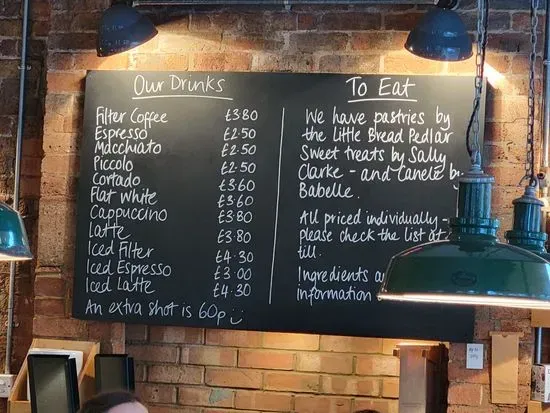 Our Drinks
Filter Coffee £3.80
Espresso £2.50
Macchiato £2.50
Piccolo £2.50
Cortado £3.60
Flat White £3.60
Cappuccino £3.80
Latte £3.80
Iced Filter £4.30
Iced Espresso £3.00
Iced Latte £4.30
An extra shot is 60p
To Eat
We have pastries by
the Little Bread Pedlar
Sweet treats by Sally
Clarke - and Canelé by
Babelle.
All priced individually -
please check the list at
till.
Ingredients
information